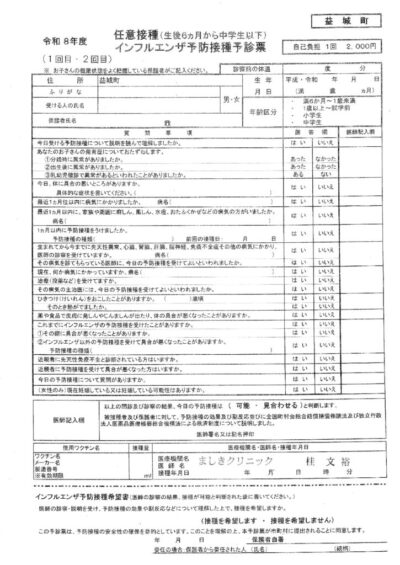 益城町
令和8年度
任意接種(生後6ヵ月から中学生以下)
インフルエンザ予防接種予診票
(1回目・2回目)
自己負担 1回 2,000円
※ お子さんの健康状態をよく把握している保護者がご記入ください。
診察前の体温 度 分
住所 益城町
生年月日 平成・令和 年 月 日
(満 歳 ヵ月)
ふりがな
受ける人の氏名
男・女
年齢区分
・満6か月~1歳未満
・1歳以上~就学前
・小学生
・中学生
保護者氏名
質問事項 回答欄 医師記入欄
今日受ける予防接種について説明を読んで理解しましたか。 はい いいえ
あなたのお子さんの発育歴についておたずねします。
①分娩時に異常がありましたか。 あった なかった
②出生後に異常がありましたか。 あった なかった
③乳幼児健診で異常があるといわれたことがありましたか。 ある ない
今日、体に具合の悪いところがありますか。
具体的な症状を書いてください。( ) はい いいえ
最近1カ月以内に病気にかかりましたか。 病名( ) はい いいえ
最近1カ月以内に、家族や周囲に麻しん、風しん、水痘、おたふくかぜなどの病気の方がいましたか。
病名( ) はい いいえ
1カ月以内に予防接種を受けましたか。
予防接種の種類( ) 前回の接種日 月 日 はい いいえ
生まれてから今までに先天性異常、心臓、腎臓、肝臓、脳神経、免疫不全症その他の病気にかかり、
医師の診察を受けていますか。 病名( ) はい いいえ
その病気を診てもらっている医師に、今日の予防接種を受けてよいといわれましたか。 はい いいえ
現在、何か病気にかかっていますか。病名( ) はい いいえ
治療(投薬など)を受けてますか。 はい いいえ
その病気の主治医には、今日の予防接種を受けてよいといわれましたか。 はい いいえ
ひきつけ(けいれん)をおこしたことがありますか。( )歳頃 はい いいえ
そのとき熱がでましたか。 はい いいえ
薬や食品で皮膚に発しんやじんましんが出たり、体の具合が悪くなったことがありますか。 はい いいえ
これまでにインフルエンザの予防接種を受けたことがありますか。 はい いいえ
①その際に具合が悪くなったことがありますか。 はい いいえ
②インフルエンザ以外の予防接種を受けて具合が悪くなったことがありますか。
予防接種の種類( ) はい いいえ
近親者に先天性免疫不全と診断されている方はいますか。 はい いいえ
近親者に予防接種を受けて具合が悪くなった方はいますか。 はい いいえ
今日の予防接種について質問がありますか。 はい いいえ
(女性のみ)現在妊娠している又は妊娠している可能性はありますか。 はい いいえ
医師記入欄
以上の問診及び診察の結果、今日の予防接種は (可能・見合わせる) と判断します。
医師署名又は記名押印
使用ワクチン 接種量 医療機関名・医師名・接種年月日
ワクチン名
メーカー名
製造番号
※有効期限
ml
医療機関名 ましきクリニック
医師名 桂 文裕
接種年月日 年 月 日 時 分
インフルエンザ予防接種希望書(医師の診察の結果、接種が可能と判断された後に書いてください。)
医師の診察・説明を受け、予防接種の効果や副反応などについて理解した上で、接種を希望しますか。
(接種を希望します ・ 接種を希望しません)
この予診票は、予防接種の安全性の確保を目的としています。このことを理解の上、本予診票が市町村に提出されることに同意します。
年 月 日 保護者自署
受任の場合 保護者から委任された人(氏名) (続柄)